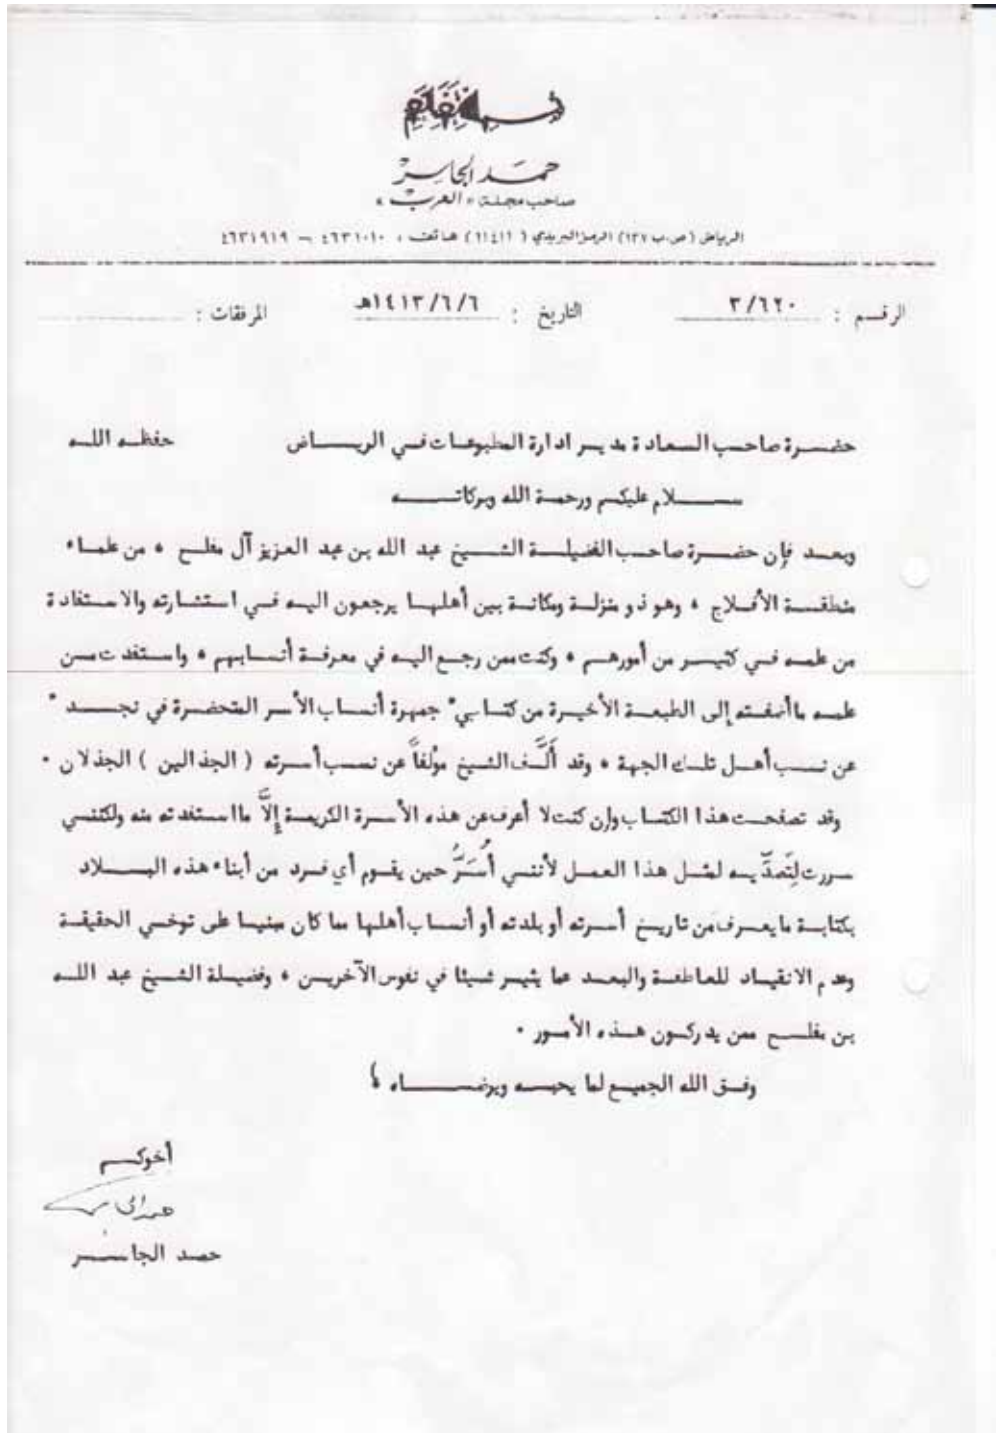 حمد الجاسر
صاحب مجلة «العرب»
الرياض (ص.ب ١٣٧) الرمز البريدي (١١٤١١) هاتف: ٤٦٣١٠١٠ – ٤٦٣١٩١٩
الرقم : ٣/٦٢٠ التاريخ : ١٤١٣/٦/٦هـ المرفقات :
حضرة صاحب السعادة مدير ادارة المطبوعات في الرياض حفظه الله
سلام عليكم ورحمة الله وبركاته
وبعد فإن حضرة صاحب الفضيلة الشيخ عبد الله بن عبد العزيز آل مفلح ، من علماء
منطقة الأفلاج ، وهو ذو منزلة ومكانة بين أهلها يرجعون اليه في استشارته والاستفادة
من علمه في كثير من أمورهم ، وكنت ممن رجع اليه في معرفة أنسابهم ، واستفدت من
علمه ماأضفته إلى الطبعة الأخيرة من كتابي " جمهرة أنساب الأسر المتحضرة في نجد "
عن نسب أهل تلك الجهة ، وقد أَلَّف الشيخ مؤلفاً عن نسب أسرته ( الجذالين ) الجذلان .
وقد تصفحت هذا الكتاب وإن كنت لا أعرف عن هذه الأسرة الكريمة إلَّا مااستفدته منه ولكنني
سررت لِتَصدِّيه لمثل هذا العمل لأنني أُسَرُّ حين يقوم أي فرد من أبناء هذه البلاد
بكتابة مايعرف من تاريخ أسرته أو بلدته أو أنساب أهلها مما كان مبنيا على توخي الحقيقة
وعدم الانقياد للعاطفة والبعد عما يثير شيئا في نفوس الآخرين ، وفضيلة الشيخ عبد الله
بن مفلح ممن يدركون هذه الأمور .
وفق الله الجميع لما يحبه ويرضاه ،
أخوكم
حمد الجاسر